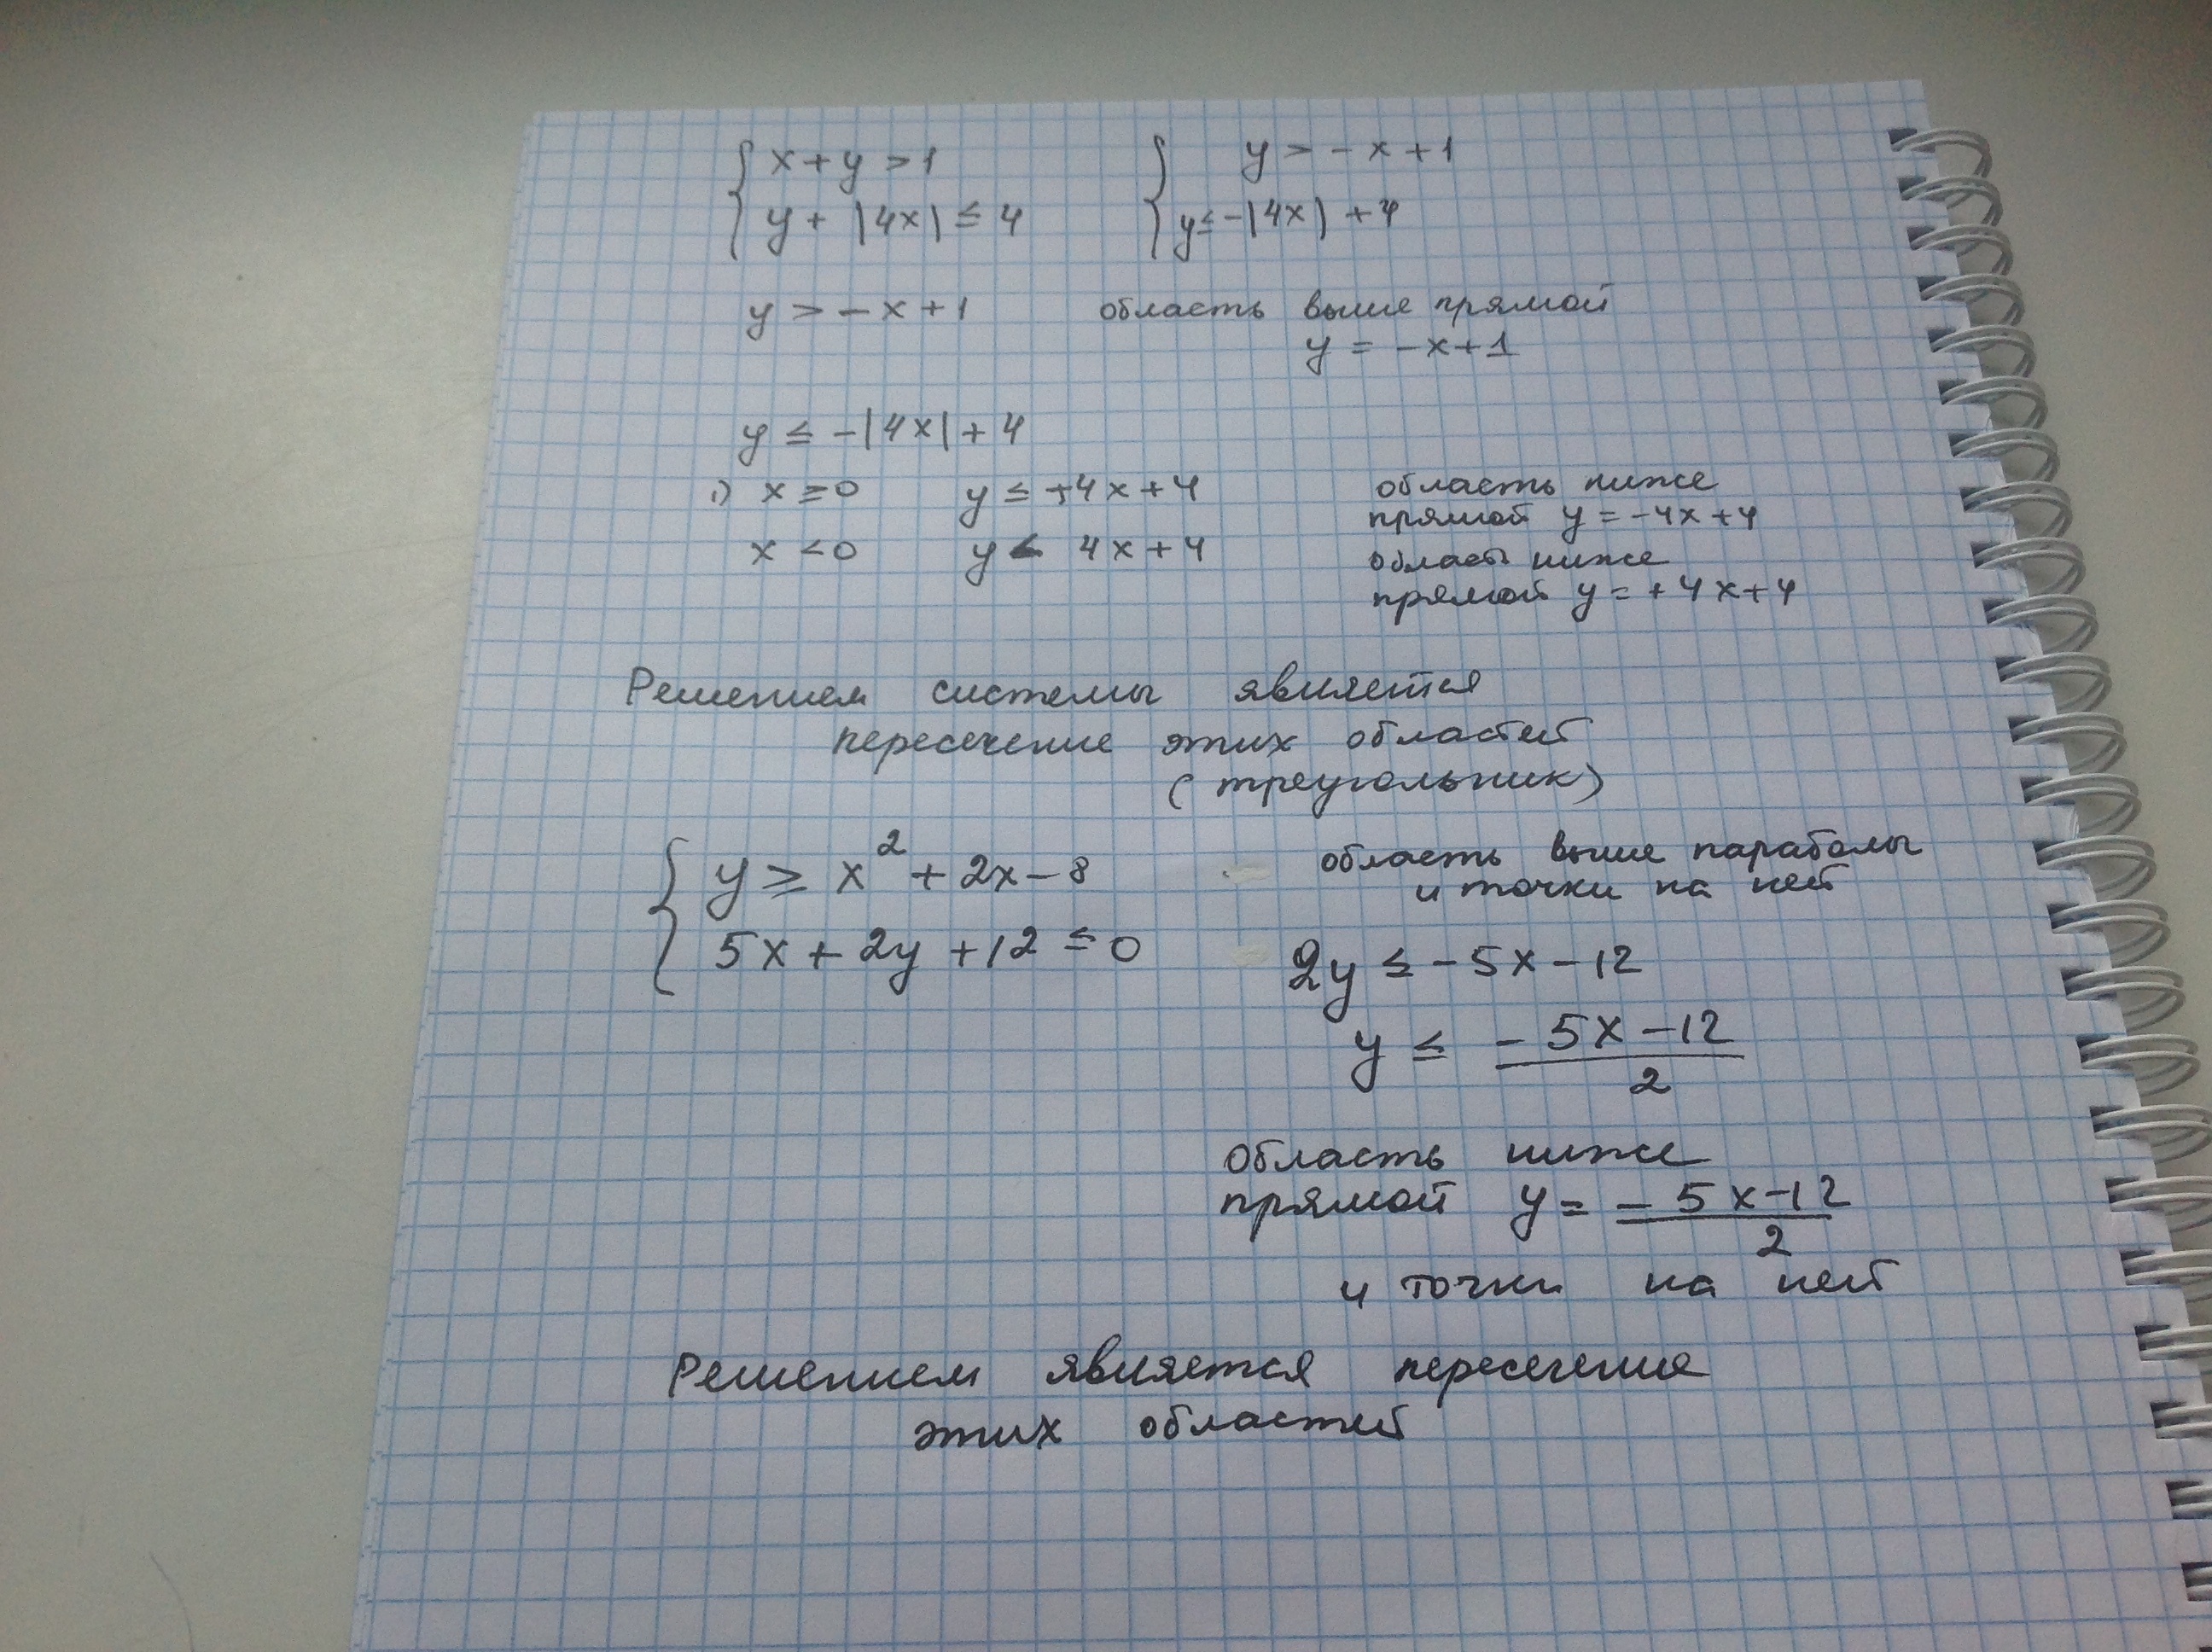 { x + y > 1 { y > - x + 1
{ y + |4x| ≤ 4 { y ≤ - |4x| + 4
y > - x + 1 область выше прямой
y = -x+1
y ≤ -|4x| + 4
1) x ≥ 0 y ≤ +4x+4 область ниже
прямой y = -4x+4
x < 0 y < 4x+4 область ниже
прямой y = +4x+4
Решением системы является
пересечение этих областей
(треугольник)
{ y ≥ x² + 2x - 8 область выше параболы
и точки на ней
{ 5x + 2y + 12 ≤ 0 2y ≤ -5x - 12
y ≤ (-5x-12)/2
область ниже
прямой y = (-5x-12)/2
и точки на ней
Решением является пересечение
этих областей